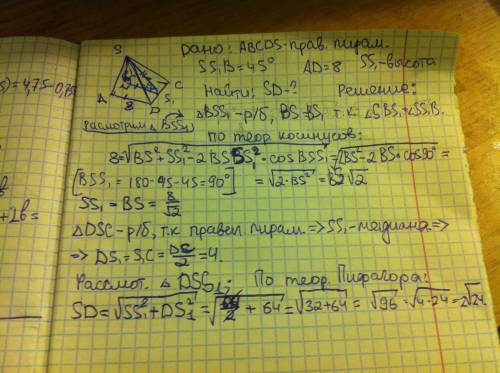 s) = 4,75 - 0,75
+ 2b =
S
A
8
D
C
S₁
Дано: ABCDS - прав. пирам.
SS₁B = 45° AD = 8 SS₁ - высота
Найти: SD - ? Решение:
Рассмотрим △BSS₁
△BSS₁ - р/б, BS = SS₁ т.к ∠SBS₁ = ∠SS₁B.
По теор косинусов:
8 = √BS² + SS₁² - 2BS · SS₁ · cos BSS₁ = √BS² - 2BS · cos90° =
[BSS₁ = 180 - 45 - 45 = 90°] = √2·BS² = BS√2
SS₁ = BS = 8/√2
△DSC - р/б, т.к правел. пирам. => SS₁ - медиана =>
=> DS₁ = S₁C = DC/2 = 4.
Рассмот. △ DSS₁; По теор. Пифагора:
SD = √SS₁² + DS₁² = √64/2 + 64 = √32 + 64 = √96 = √4·24 = 2√24